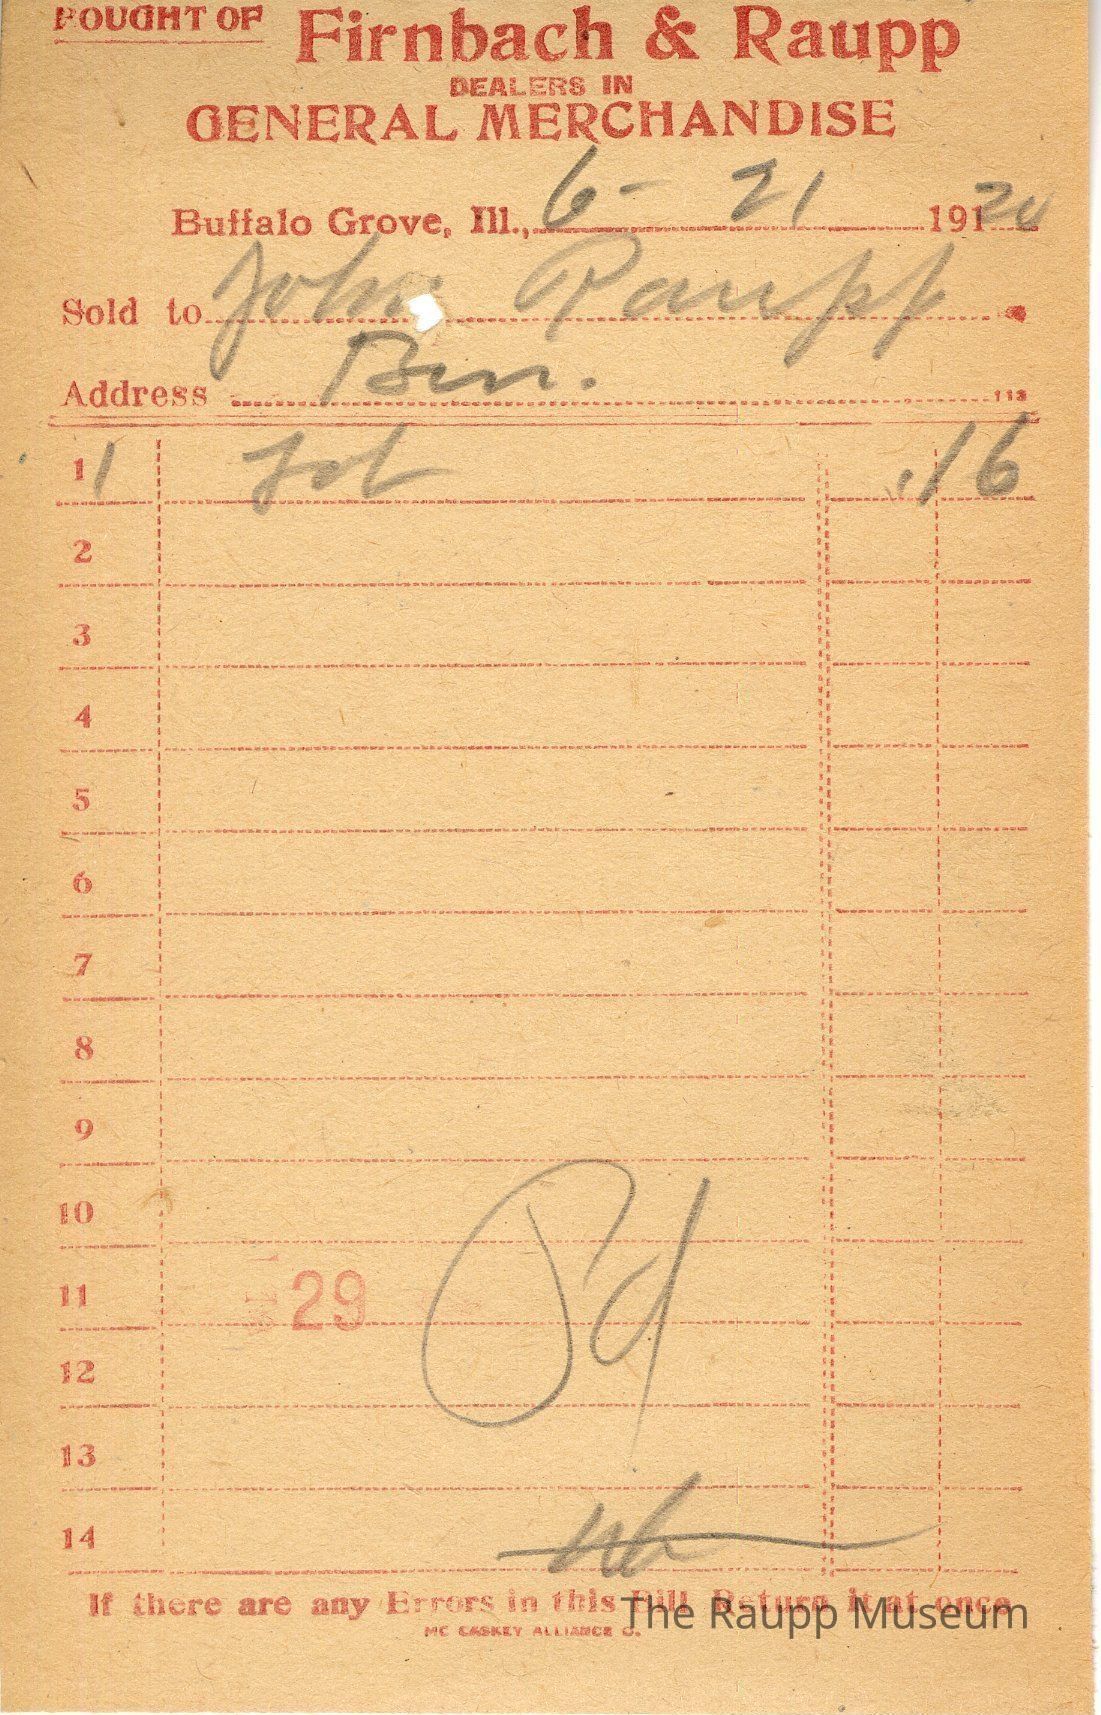 BOUGHT OF Firnbach & Raupp
DEALERS IN
GENERAL MERCHANDISE
Buffalo Grove, Ill., 6- 21 191 20
Sold to John Raupp
Address Ben. 113
1 1 .16
2
3
4
5
6
7
8
9
10
11 29
12
13
14
Pd
If there are any Errors in this Bill Return it at once
The Raupp Museum
MC CASKEY ALLIANCE O.